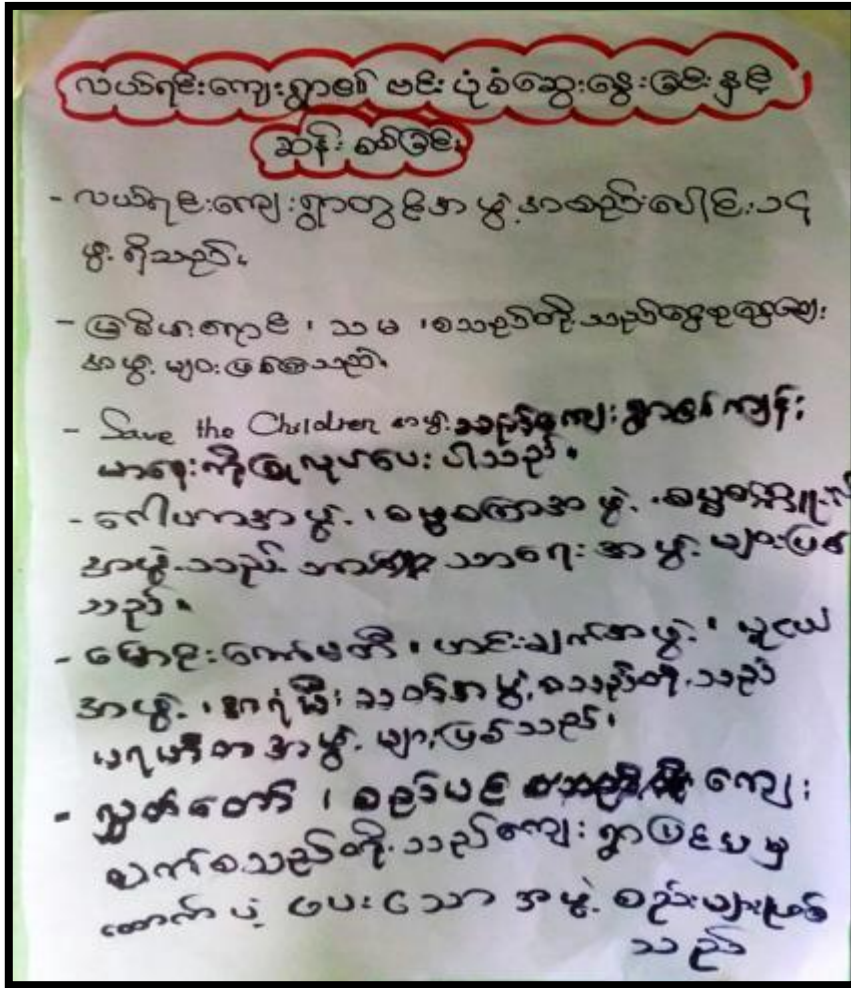 လယ်ရင်းကျေးရွာ၏ ဗင်းပုံစံဆွေးနွေးခြင်းနှင့်
ဆန်းစစ်ခြင်း
- လယ်ရင်းကျေးရွာတွင်အဖွဲ့အစည်းပေါင်း ၁၄
ဖွဲ့ ရှိသည်။
- မြစိမ်းရောင် ၊ သမ ၊ စသည်တို့သည်ငွေစုငွေချေး
အဖွဲ့ များဖြစ်ကြသည်။
- Save the Children အဖွဲ့သည်ကျေးရွာ၏ ကျန်း
မာရေးကိုပြုလုပ်ပေးပါသည်။
- ဂေါပကအဖွဲ့ ၊ ဓမ္မစကြာအဖွဲ့ ၊
အဖွဲ့သည် ဘာသာရေး အဖွဲ့ များဖြစ်
သည်။
- မြောင်းကော်မတီ ၊ ဟင်းချက်အဖွဲ့ ၊ လူငယ်
အဖွဲ့ ၊ အရံမီးသတ်အဖွဲ့ စသည်တို့သည်
ပရဟိတအဖွဲ့ များဖြစ်သည်။
- လွှတ်တော် ၊ စည်ပင် ကျေး
လက်စသည်တို့သည်ကျေးရွာပြင်ပမှ
ထောက်ပံ့ ပေးသော အဖွဲ့စည်းများဖြစ်
သည်